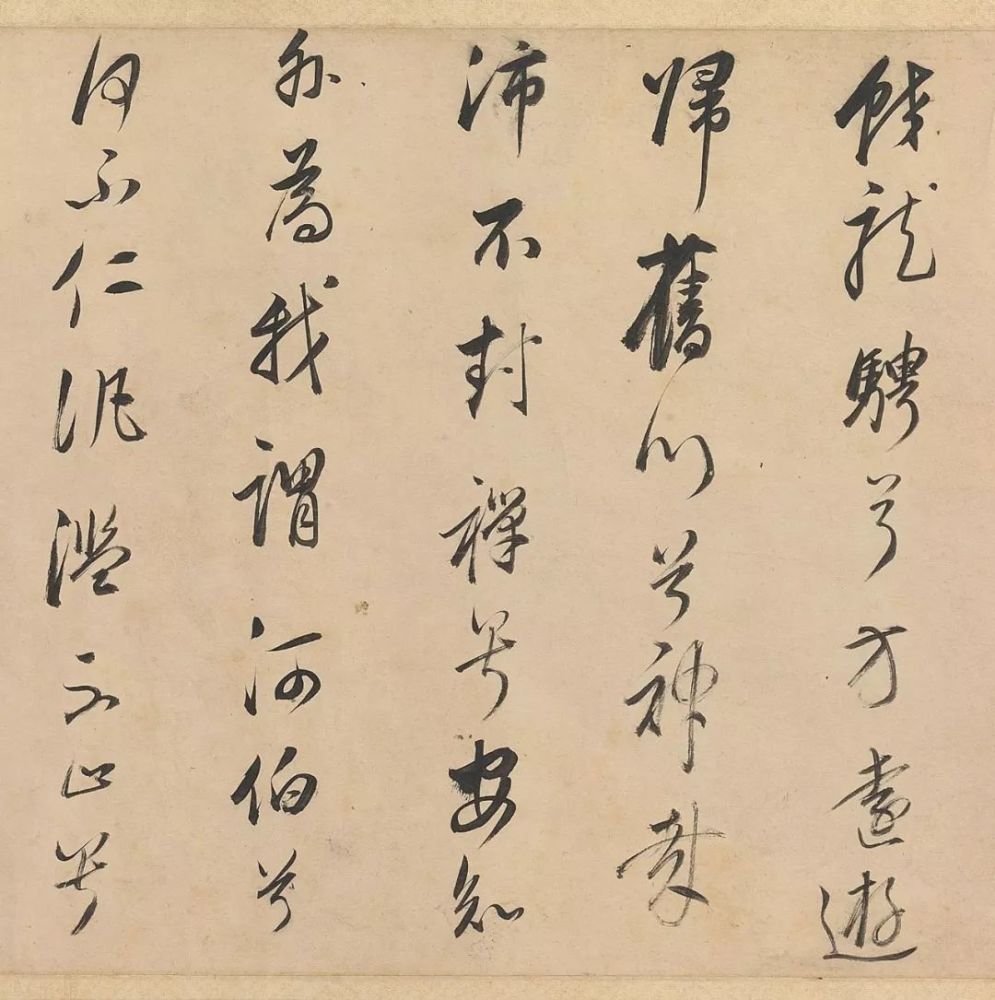 蛟龍騁兮方遠遊
歸舊川兮神哉
沛不封禪兮安知
外為我謂河伯兮
何不仁泛濫不止兮